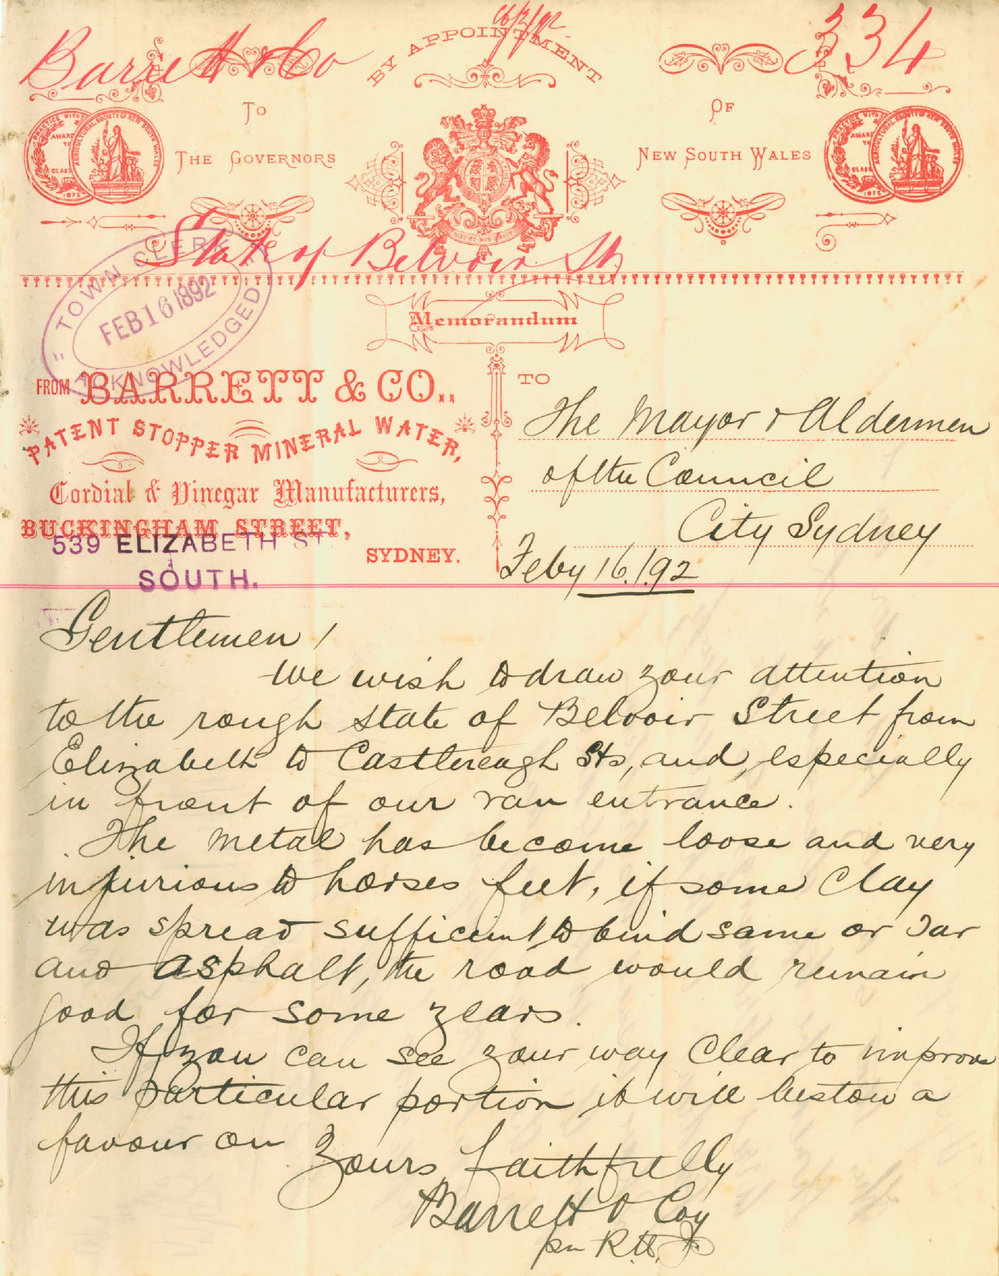 Barrett & Co
16/2/92
334
BY APPOINTMENT
To
The Governors
Of
New South Wales
State of Belvoir St
"TOWN CLERK"
FEB 16 1892
ACKNOWLEDGED
Memorandum
FROM BARRETT & CO.,
PATENT STOPPER MINERAL WATER,
Cordial & Vinegar Manufacturers,
BUCKINGHAM STREET,
539 ELIZABETH ST
SOUTH.
SYDNEY.
TO
The Mayor & Aldermen
of the Council
City Sydney
Feby 16/92
Gentlemen /
We wish to draw your attention
to the rough state of Belvoir Street from
Elizabeth to Castlereagh Sts, and, especially
in front of our van entrance.
The metal has become loose and very
injurious to horses feet, if some Clay
was spread sufficient to bind same or Tar
and asphalt, the road would remain
good for some years.
If you can see your way Clear to improve
this particular portion it will bestow a
favour on
Yours faithfully
Barrett & Coy